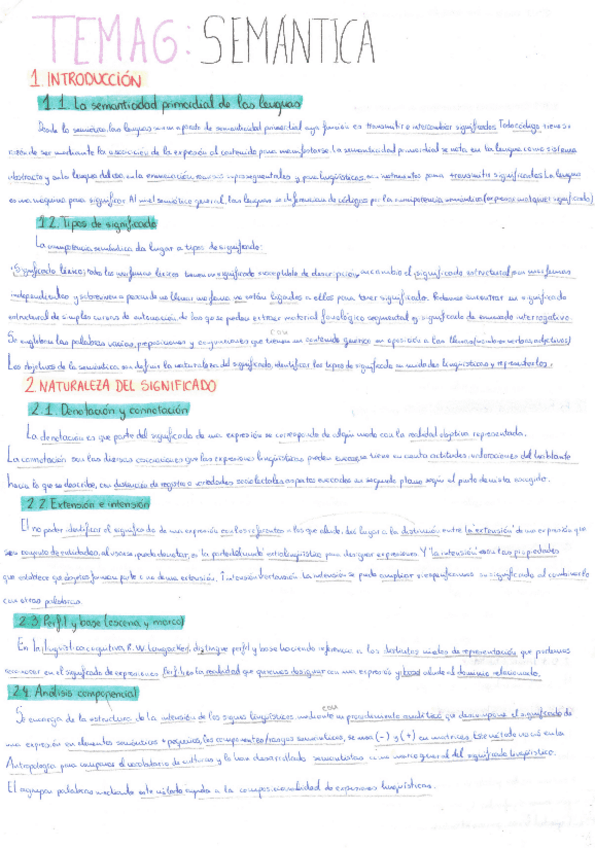 TEMA6: SEMÁNTICA
1. INTRODUCCIÓN
1.1. La semanticidad primordial de las lenguas
Desde la semiótica, las lenguas semanticidad primordial cuya función es transmitir e intercambiar significados. Todo código tiene su
razón de ser mediante la asociación de la expresión al contenido para manifestarse. La semanticidad primordial se nota en la lengua como sistema
abstracto y en la lengua del uso en la enunciación, suprasegmentales y paralingüísticos son instrumentos para transmitir significados. La lengua
es un mecanismo para significar. Al nivel semiótico general, las lenguas se diferencian de códigos por la omnipotencia semántica (expresar cualquier significado)
1.2. Tipos de significado
La omnipotencia semántica da lugar a tipos de significado:
·Significado léxico: todos los morfemas léxicos tienen un significado susceptible de descripción, en cambio el significado estructural son morfemas
independientes y no están ligados a ellos para tener significado. Podemos encontrar un significado
estructural de simples curvas de entonación de las que se pueden extraer material fonológico segmental y significado de enunciado interrogativo.
Se engloban las palabras vacías, preposiciones y conjunciones que tienen un contenido genérico en oposición a las llenas (nombres, verbos, adjetivos)
Los objetivos de la semántica son definir la naturaleza del significado, identificar los tipos de significado en unidades lingüísticas y representarlos.
2. NATURALEZA DEL SIGNIFICADO
2.1. Denotación y connotación
La denotación es que parte del significado de una expresión se corresponde de algún modo con la realidad objetiva representada.
La connotación son las diversas que las expresiones lingüísticas pueden evocar, se tiene en cuenta actitudes, valoraciones del hablante
hacia lo que se describe, con distinción de registro o variedades sociolectales, aspectos evocados en segundo plano según el punto de vista escogido.
2.2 Extensión e intensión
El no poder identificar el significado de una expresión con los referentes a los que alude, da lugar a la distinción entre la "extensión" de una expresión que
sea conjunto de entidades, al usarse, puede denotar, es la parte del mundo extralingüístico para designar expresiones. Y "la intensión" son las propiedades
que establece qué objetos forman parte o no de una extensión. ↑ intensión ↓ extensión. La intensión se puede ampliar si especificamos su significado al combinarlo
con otras palabras.
2.3 Perfil y base (escena y marco)
En la lingüística cognitiva, R.W. Langacker, distingue perfil y base haciendo referencia a los distintos niveles de representación que podemos
reconocer en el significado de expresiones. Perfil: es la realidad que queremos designar con una expresión y base alude al dominio relacionado.
2.4. Análisis componencial
Se encarga de la estructura de la intensión de los signos lingüísticos mediante un procedimiento analítico que descompone el significado de
una expresión en elementos semánticos + pequeños, los componentes/rasgos semánticos, se usa (-) y (+) en matrices. Este método en la
Antropología para comparar el vocabulario de culturas y lo han desarrollado semantistas como marco general del significado lingüístico.
El agrupar palabras mediante este método ayuda a la composicionalidad de expresiones lingüísticas.